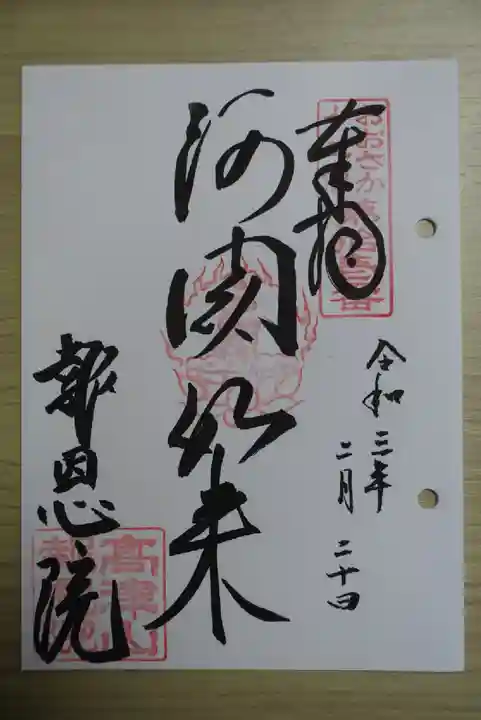 奉拝
おおさか
令和三年
二月 二十四
阿閦如来
報恩院
高津山
報恩院